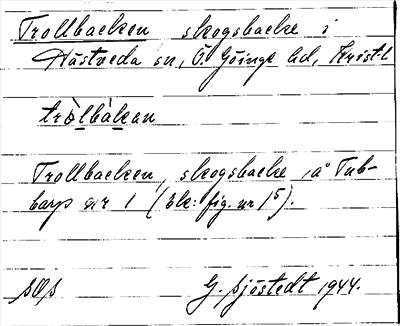 Trollbacken skogsbacke i
Hästveda sn, Ö. Göinge hd, Krist. l
tròlbàkan
Trollbacken, skogsbacke, å Tub-
barp nr 1 (Ek: fig. nr 15).
SOS G. Sjöstedt 1944.